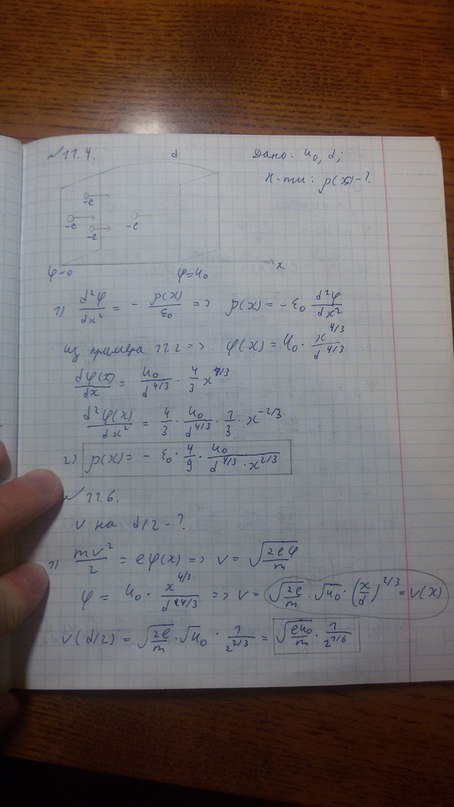 № 11.4. d Дано: u₀, d;
Н-ти: ρ(x)-?
-e -e -e -e
φ=0 φ=u₀ x
1) d²φ/dx² = - ρ(x)/ε₀ => ρ(x) = -ε₀ d²φ/dx²
из примера 11.2 => φ(x) = u₀ · x^(4/3)/d^(4/3)
dφ(x)/dx = u₀/d^(4/3) · 4/3 x^(1/3)
d²φ(x)/dx² = 4/3 · u₀/d^(4/3) · 1/3 · x^(-2/3)
2) ρ(x) = - ε₀ · 4/9 · u₀/(d^(4/3) · x^(2/3))
№ 11.6.
v на d/2 - ?
1) mv²/2 = eφ(x) => v = √(2eφ/m)
φ = u₀ · x^(4/3)/d^(4/3) => v = √(2e/m) · √u₀ · (x/d)^(2/3) = v(x)
v(d/2) = √(2e/m) · √u₀ · 1/2^(2/3) = √(eu₀/m) · 1/2^(1/6)